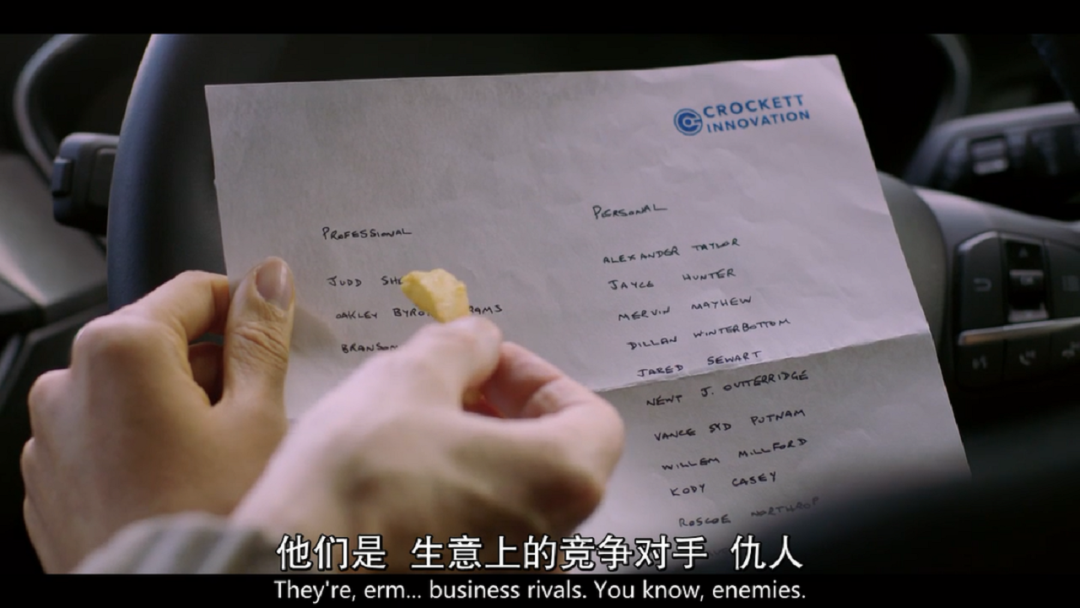 CROCKETT
INNOVATION
PROFESSIONAL
JUDD
OAKLEY
BRANSON
PERSONAL
ALEXANDER TAYLOR
JAYCE HUNTER
MERVIN MATHEW
DILLAN WINTERBOTTOM
JARED SEWART
NEWT J. OUTTERRIDGE
VANCE SYD PUTNAM
WILLEM MILLFORD
KODY CASEY
ROSCOE NORTHROP
他们是 生意上的竞争对手 仇人
They're, erm... business rivals. You know, enemies.